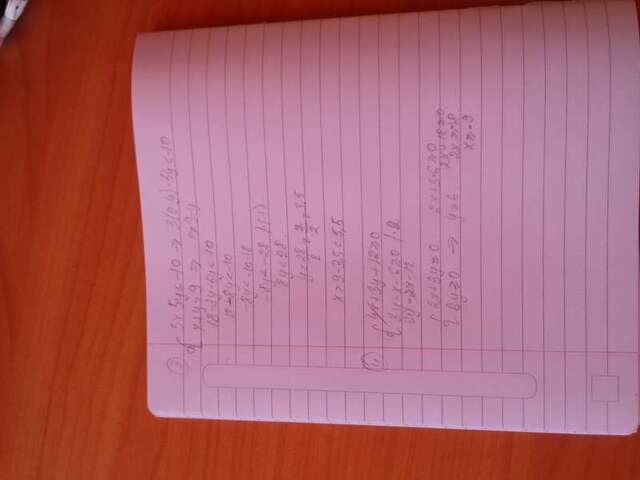 3) { 3x-5y<-10 → 3(9-y)-5y<-10
x+y>9 ⇒ x>9-y
18-3y-5y<-10
18-8y<-10
-8y<-10-18
-8y<-28 /·(-1)
8y<28
y<28/8 = 7/2 = 3,5
x>9-3,5=5,5
4)
+3y+12≥0
3y-x-6≥0 /·2
6y-2x-12
{ 2x+3y≥0 2x+3·6≥0
6y≥0 → y≥6 2x+18≥0
2x≥-18
x≥-9